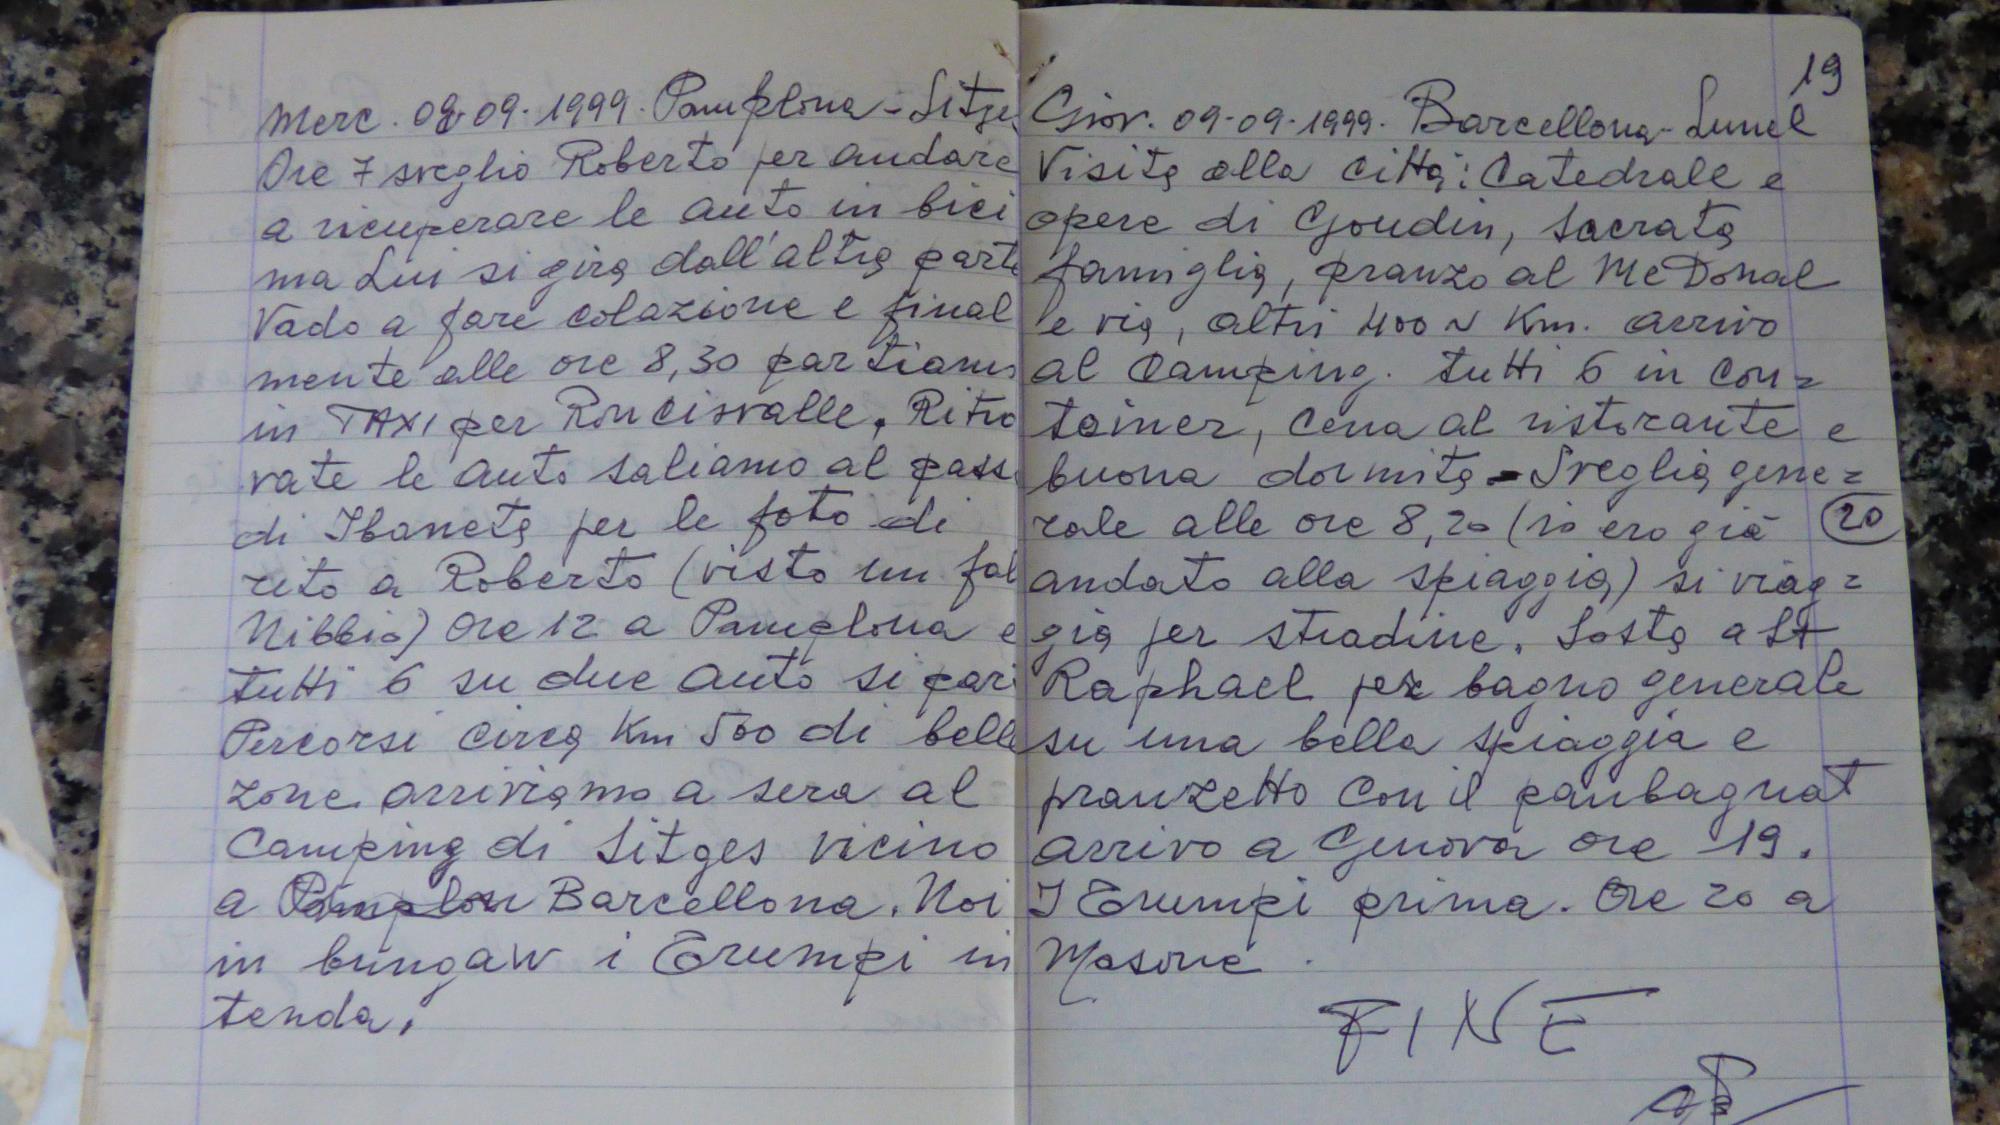 Merc. 08-09-1999. Pamplona - Sitge
Ore 7 sveglio Roberto per andare
a ricuperare le auto in bici
ma Lui si gira dall'altra parte
Vado a fare colazione e final
mente alle ore 8,30 partiamo
in TAXI per Roncisvalle. Ritro
vate le auto saliamo al pass
di Ibaneta per le foto di
rito a Roberto (visto un fal
Nibbio) Ore 12 a Pamplona e
tutti 6 su due auto si par
Percorsi circa Km 500 di belle
zone arriviamo a sera al
Camping di Sitges vicino
a Pamplon Barcellona. Noi
in bungaw i Erumpi in
tenda.
19
Giov. 09-09-1999. Barcellona - Lunel
Visita alla città: Catedrale e
opere di Goudin, Sacrata
famiglia, pranzo al McDonal
e via, altri 400 ~ Km. arrivo
al Camping. tutti 6 in con=
tainer, cena al ristorante e
buona dormita - Sveglia gene=
rale alle ore 8,20 (io ero già
20
andato alla spiaggia) si viag=
gia per stradine. Sosta a St
Raphael per bagno generale
su una bella spiaggia e
pranzetto con il panbagnat
arrivo a Genova ore 19.
I Erumpi prima. Ore 20 a
Masone.
FINE